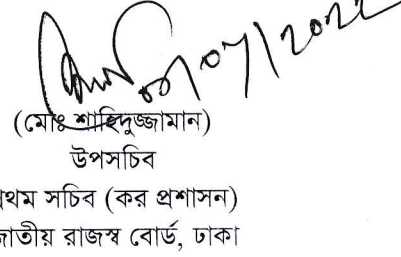 (মোঃ শাহিদুজ্জামান)
উপসচিব
থম সচিব (কর প্রশাসন)
জাতীয় রাজস্ব বোর্ড, ঢাকা